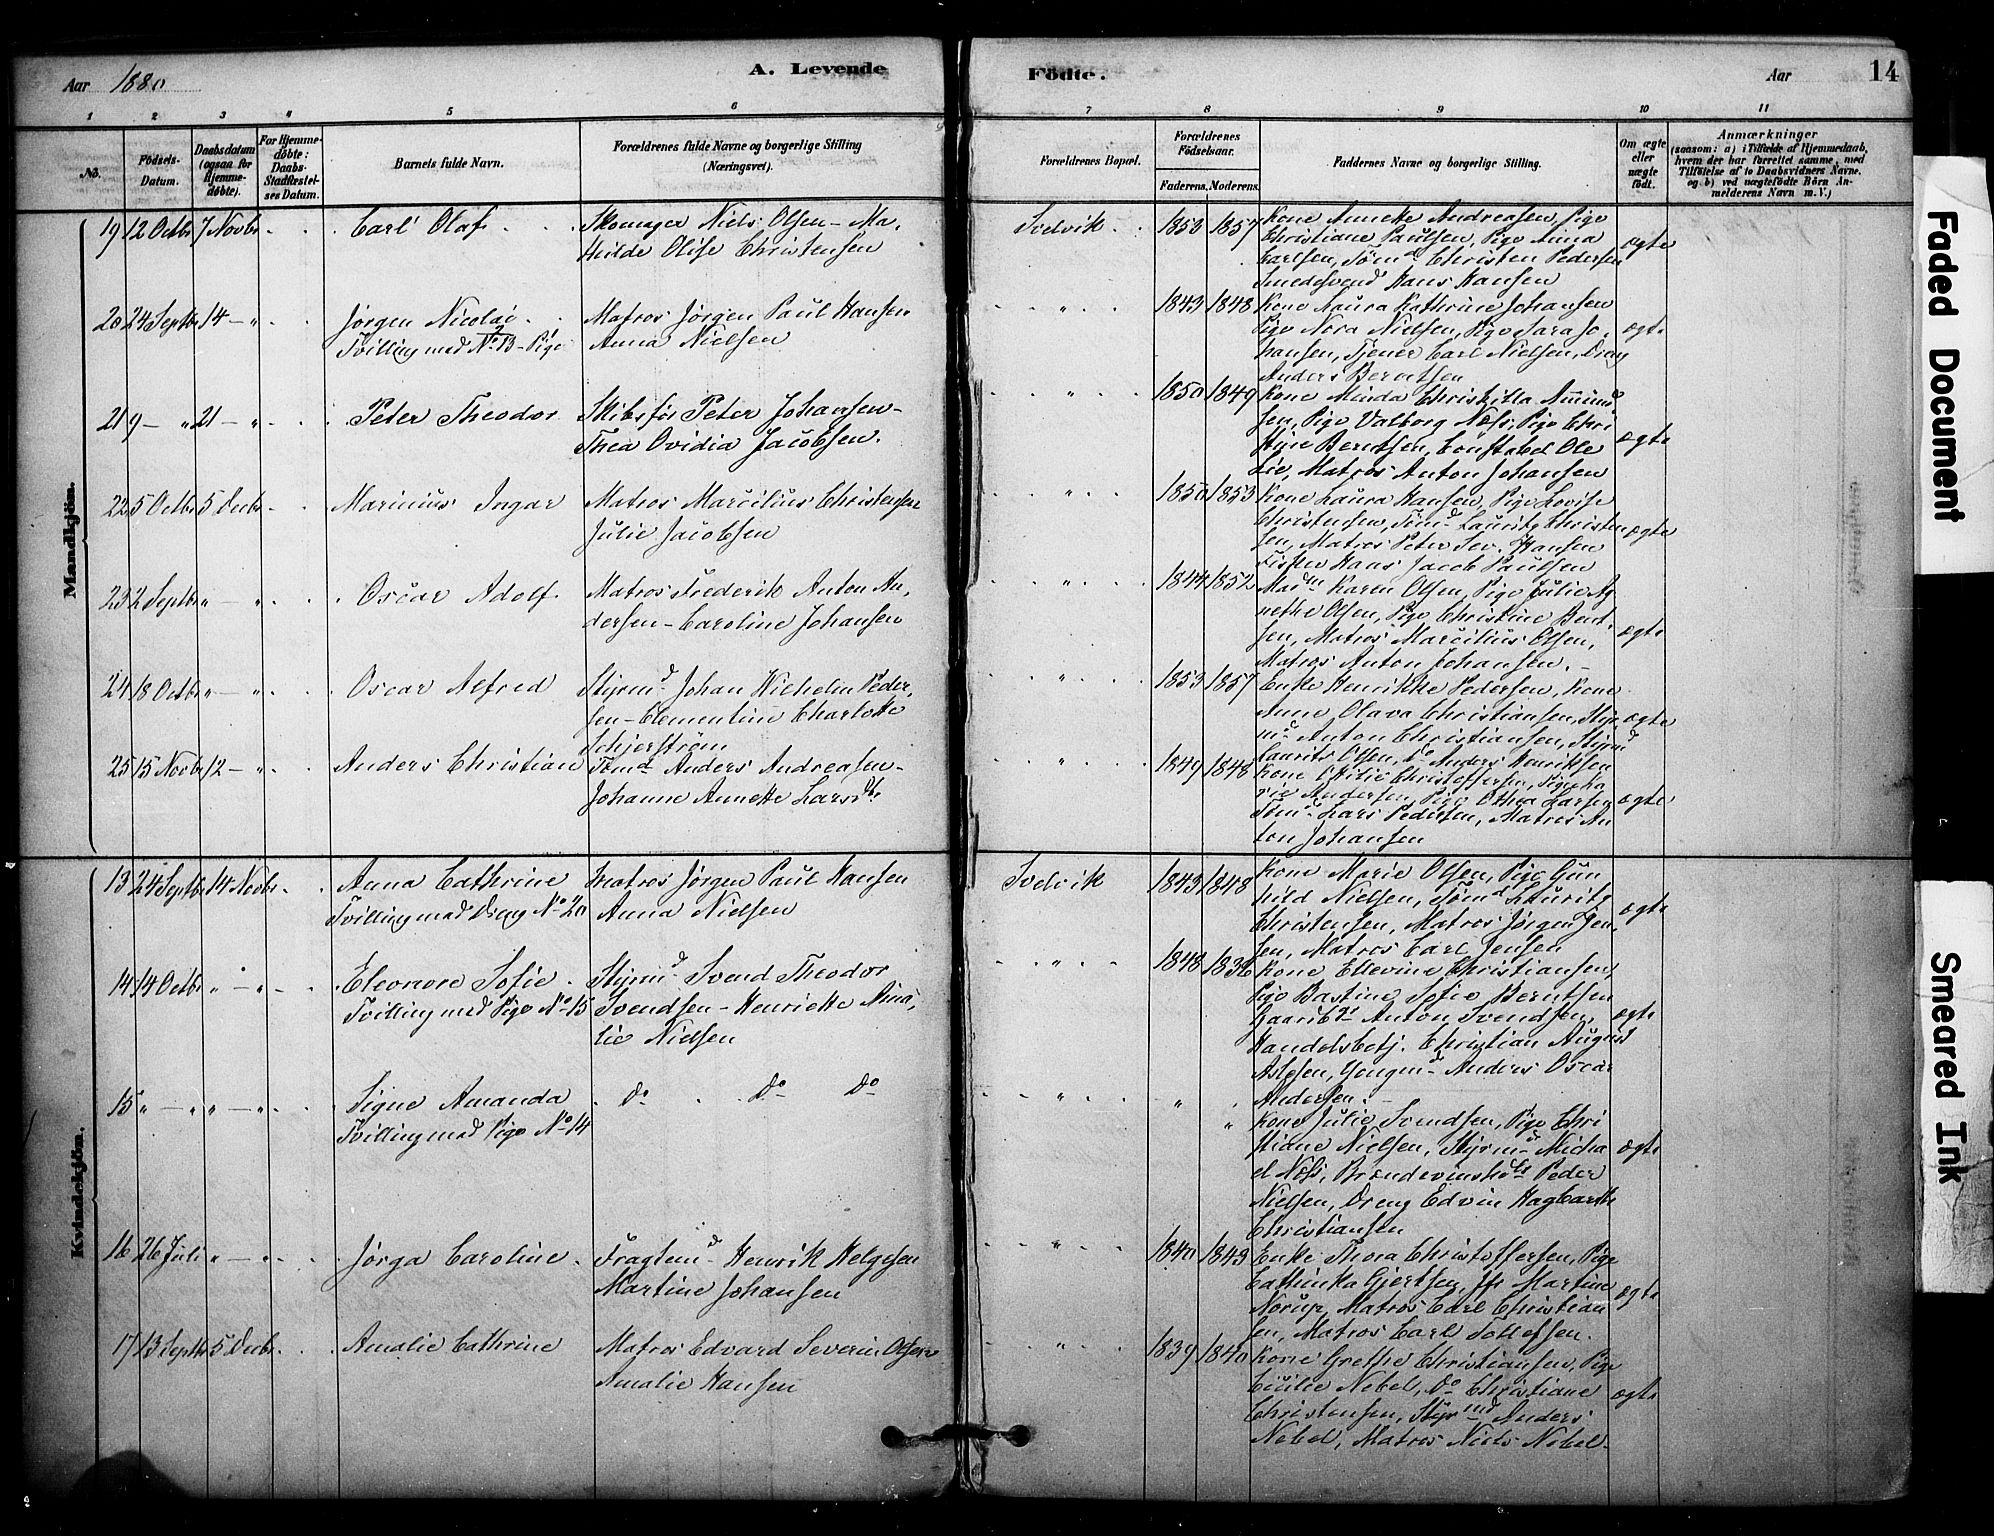 Aar 1880
A. Levende
Födte.
Aar
14
1 2 3 4 5 6 7 8 9 10 11
No.
Födsels-Datum.
Daabsdatum (ogsaa for Hjemme-döbte).
For Hjemme-döbte: Daabs-Stadfæstel-ses Datum.
Barnets fulde Navn.
Forældrenes fulde Navne og borgerlige Stilling
(Næringsvei).
Forældrenes Bopæl.
Forældrenes Födselsaar.
Faderens. Moderens.
Faddernes Navne og borgerlige Stilling.
Om ægte eller uægte födt.
Anmærkninger
(saasom: a) i Tilfælde af Hjemmedaab,
hvem der har forrettet samme, med
Tilföielse af to Daabsvidners Navne,
og b) ved uægtefödte Börn An-
melderens Navn m. V.)
Mandkjön.
19 12 Octbr 7 Novbr Carl Olaf Skomager Niels Olsen - Ma,
thilde Olise Christensen
Svelvik 1853 1857 Kone Annette Andreasen, Pige
Christiane Paulsen, Pige Anna
Carlsen, Tømd Christen Pedersen
Smedesvend Hans Hansen
ægte
20 24 Septbr 14 - " Jørgen Nicolai
Tvilling med No 13 - Pige
Matros Jørgen Paul Hansen
Anna Nielsen
" 1843 1848 Kone Laura Kathrine Johansen
Pige Nora Nielsen, Pige Sara Jo,
hansen, Tjener Carl Nielsen, Dreng
Anders Berntsen
ægte
21 9 - " 21 - " Peter Theodor
Skibsfør Peter Johansen -
Thea Ovidia Jacobsen.
" 1850 1849 Kone Minda Christitha Amund
sen, Pige Valborg Næss, Pige Chri
stine Berntsen, Constabel Ole
Lie, Matros Anton Johansen
ægte
22 5 Octbr 5 Decbr Marinius Ingar
Matros Marcilius Christensen
Julie Jacobsen
" 1850 1853 Kone Laura Hansen, Pige Lovise
Christensen, Tømd Lauritz Christen
sen, Matros Peter Sev. Hansen
Fisker Hans Jacob Paulsen
ægte
23 2 Septbr " - " Oscar Adolf
Matros Frederik Anton An,
dersen - Caroline Johansen
" 1844 1852 Madm Karen Olsen, Pige Julie Ag
nethe Olsen, Pige Christine Bent,
sen, Matros Marcilius Olsen,
Matros Anton Johansen. -
ægte
24 18 Octbr " - " Oscar Alfred
Styrmd Johan Wilhelm Peder,
sen - Clementine Charlotte
Schjerström
" 1853 1857 Enke Henrikke Pedersen, Kone
Anne Olava Christiansen, Styr
md Anton Christiansen, Styrmd
Laurits Olsen, Do Anders Henriksen
ægte
25 15 Novbr 12 - " Anders Christian
Tømd Anders Andreasen -
Johanne Annette Larsdtr
" 1849 1848 Kone Ottilie Christoffersen, Pige Ma
rie Andersen, Pige Othea Larsen
Tømd Lars Pedersen, Matros An
ton Johansen
ægte
Kvindekjön.
13 24 Septbr 14 Novbr Anna Cathrine
Tvilling med Dreng No 20
Matros Jørgen Paul Hansen
Anna Nielsen
Svelvik 1843 1848 Kone Marie Olsen, Pige Gun
hild Nielsen, Tømd Lauritz
Christensen, Matros Jørgen Jen,
sen, Matros Carl Jensen
ægte
14 14 Octbr " - " Eleonore Sofie
Tvilling med Pige No 15
Styrmd Svend Theodor
Svendsen - Henriette Ama,
lie Nielsen
" 1848 1836 Kone Ellevine Christiansen,
Pige Bastine Sofie Berntsen
Gaardbr Anton Svendsen,
Handelsbetj. Christian August
Aslesen, Gjengmd Anders Oscar
Andersen. -
ægte
15 " - " " - " Signe Amanda
Tvilling med Pige No 14
Do Do Do
" " " Kone Julie Svendsen, Pige Chri
stiane Nielsen, Styrmd Micha
el Næss, Brændevinsh Peder
Nielsen, Dreng Edvin Hagbarth
Christiansen
ægte
16 26 Juli " - " Jørga Caroline
Fragtemd Henrik Helgesen
Martine Johansen
" 1840 1843 Enke Thora Christoffersen, Pige
Cathinka Gjertsen, Jfr Martine
Norup, Matros Carl Christian
sen, Matros Carl Tollefsen.
ægte
17 13 Septbr 5 Decbr Amalie Cathrine
Matros Edvard Severin Olsen
Amalie Hansen
" 1839 1840 Kone Grethe Christiansen, Pige
Cicilie Nebel, Do Christiane
Christensen, Styrmd Anders
Nebel, Matros Niels Nebel.
ægte
Faded Document
Smeared Ink